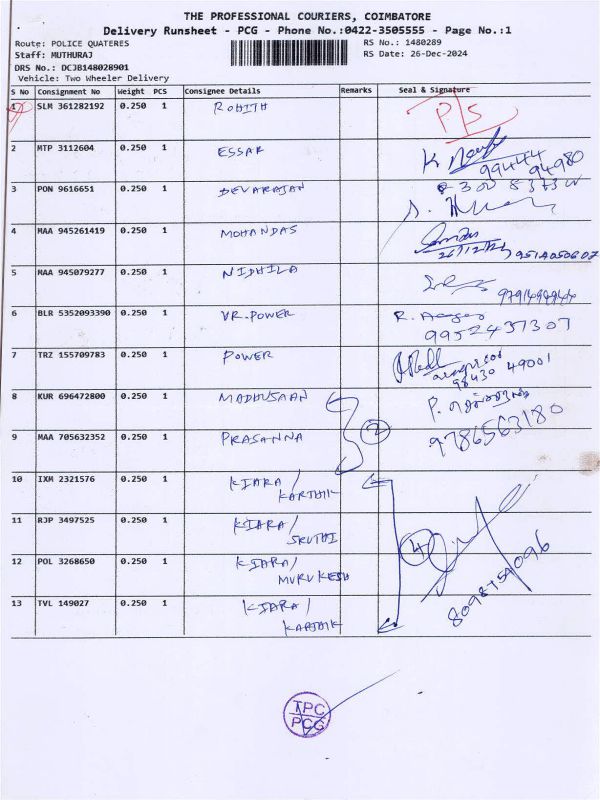 THE PROFESSIONAL COURIERS, COIMBATORE
Delivery Runsheet - PCG - Phone No.:0422-3505555 - Page No.:1
Route: POLICE QUATERES
RS No.: 1480289
Staff: MUTHURAJ
RS Date: 26-Dec-2024
DRS No.: DCJB148028901
Vehicle: Two Wheeler Delivery
S No Consignment No Weight PCS Consignee Details Remarks Seal & Signature
1 SLM 361282192 0.250 1 ROHITH P/S
2 MTP 3112604 0.250 1 ESSAR
99444 94980
3 PON 9616651 0.250 1 DEVARAJAN
4 MAA 945261419 0.250 1 MOHANDAS
26/12/24 9514050607
5 MAA 945079277 0.250 1 NIDHILA
6 BLR 5352093390 0.250 1 VR.POWER
9952437307
7 TRZ 155709783 0.250 1 POWER
98430 49001
8 KUR 696472800 0.250 1 MADHUSAAN
9 MAA 705632352 0.250 1 PRASANNA 2 9786563180
10 IXM 2321576 0.250 1 KIARA/
KARTHIK
11 RJP 3497525 0.250 1 KIARA/
SRUTHI
4
12 POL 3268650 0.250 1 KIARA/
MURUKESH
13 TVL 149027 0.250 1 KIARA/
KARTHIK
TPC
PCG